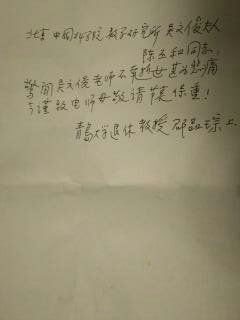 北京 中国科学院 数学研究所 吴文俊夫人
陈丕和同志,
惊闻吴文俊老师不幸逝世甚为悲痛
谨致电师母敬请节哀保重!
青岛大学退休教授 邵品琮 上